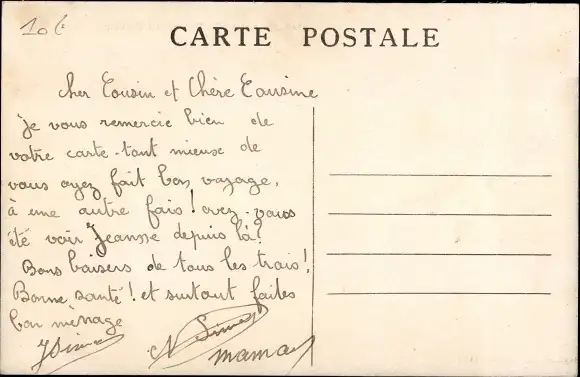 10€
CARTE POSTALE
cher Cousin et Chère Cousine
Je vous remercie bien de
votre carte. tant mieuse de
vous ayez fait bon voyage,
à une autre fois! avez-vous
été voir Jeansse depuis là?
Bons baisers de tous les trois!
Bonne santé! et surtout faites
bon ménage
maman